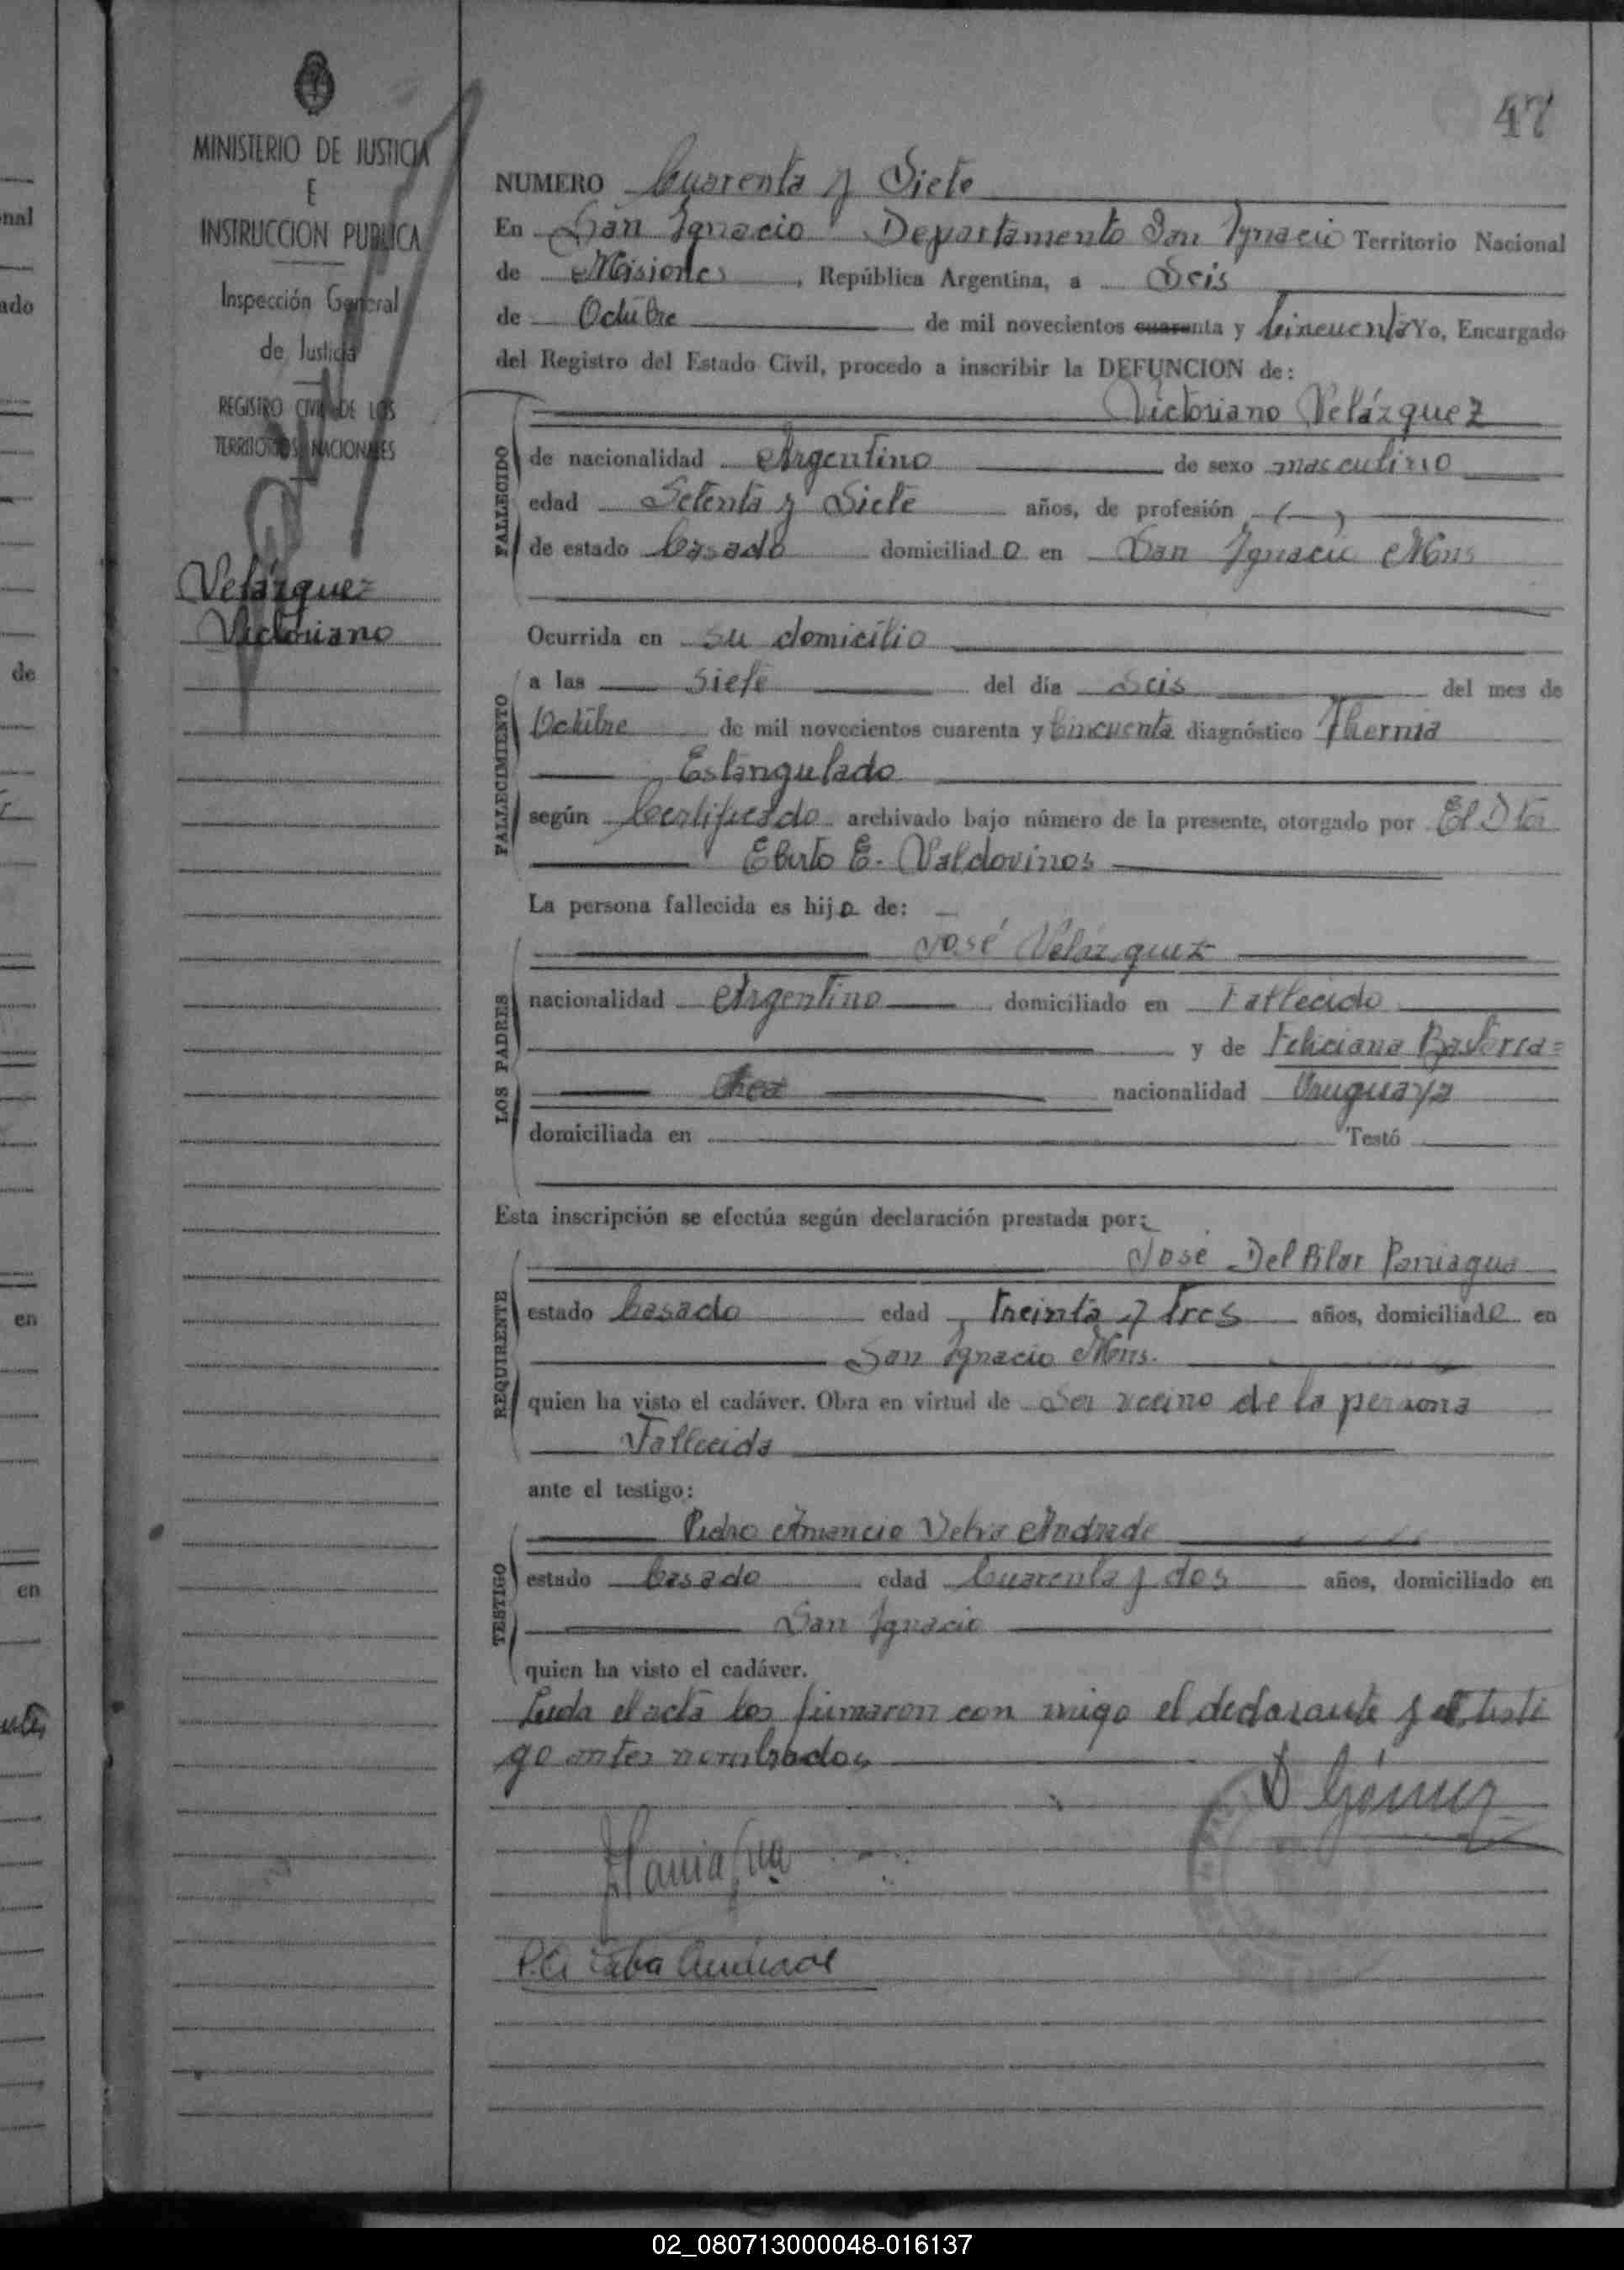 47
MINISTERIO DE JUSTICIA
E
INSTRUCCION PUBLICA
Inspección General
de Justicia
REGISTRO CIVIL DE LOS
TERRITORIOS NACIONALES
Velázquez
Victoriano
NUMERO Cuarenta y Siete
En San Ignacio Departamento San Ignacio Territorio Nacional
de Misiones, República Argentina, a Seis
de Octubre de mil novecientos cuarenta y Cincuenta Yo, Encargado
del Registro del Estado Civil, procedo a inscribir la DEFUNCION de:
Victoriano Velázquez
FALLECIDO
de nacionalidad Argentino de sexo masculino
edad Setenta y Siete años, de profesión (—)
de estado Casado domiciliado en San Ignacio Mnes
Ocurrida en su domicilio
FALLECIMIENTO
a las siete del día Seis del mes de
Octubre de mil novecientos cuarenta y Cincuenta diagnóstico Hernia
Estangulado
según Certificado archivado bajo número de la presente, otorgado por El Dtor
E. Valdovinos
La persona fallecida es hijo de:
José Velázquez
LOS PADRES
nacionalidad Argentino domiciliado en Fallecido
y de Feliciana
nacionalidad Uruguaya
domiciliada en Testó
Esta inscripción se efectúa según declaración prestada por:
José Del Pilar Paniagua
REQUIRENTE
estado Casado edad Treinta y Tres años, domiciliado en
San Ignacio Mnes.
quien ha visto el cadáver. Obra en virtud de Ser vecino de la persona
Fallecida
ante el testigo:
Pedro Amancio Andrade
TESTIGO
estado Casado edad Cuarenta y dos años, domiciliado en
San Ignacio
quien ha visto el cadáver.
Leida el acta los firmaron con migo el declarante y el testi
go antes nombrados
D Gómez
Paniagua
P.A. Andrade
nal
ado
de
en
en
02_080713000048-016137